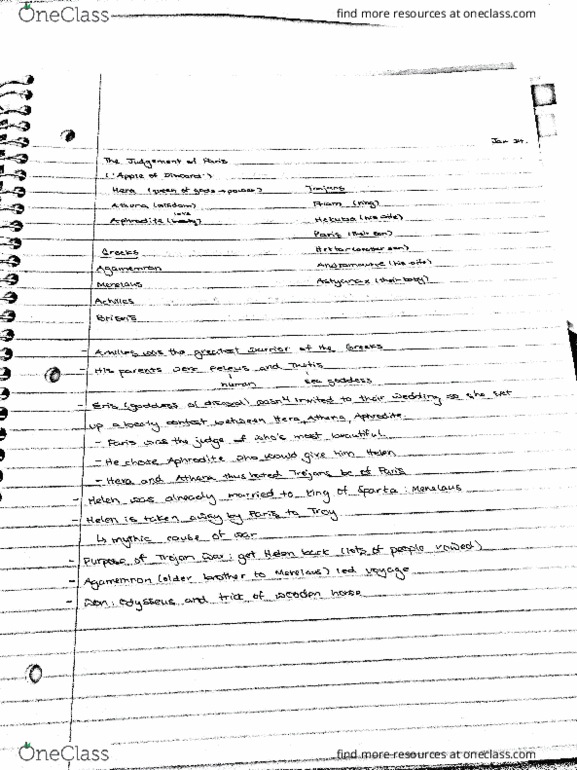 OneClass
find more resources at oneclass.com
Jan 24.
The Judgement of Paris
("Apple of Discord")
Hera (queen of gods → power)
Athena (wisdom)
love
Aphrodite (beauty)
Trojans
Priam (king)
Hekuba (his wife)
Paris (their son)
Hektor (another son)
Andromache (his wife)
Astyanax (their baby)
Greeks
Agamemnon
Menelaus
Achilles
Briseis
- Achilles was the greatest warrior of the Greeks
- His parents were Peleus and Thetis
human
sea goddess
- Eris (goddess of discord) wasn't invited to their wedding so she set
up a beauty contest between Hera, Athena, Aphrodite.
- Paris was the judge of who's most beautiful.
- He chose Aphrodite who would give him Helen
- Hera and Athena thus hated Trojans bc of Paris
- Helen was already married to King of Sparta: Menelaus
- Helen is taken away by Paris to Troy
↳ mythic cause of war
- Purpose of Trojan War: get Helen back (lots of people vowed)
- Agamemnon (older brother to Menelaus) led voyage
- Won: Odysseus and trick of wooden horse
OneClass
find more resources at oneclass.com